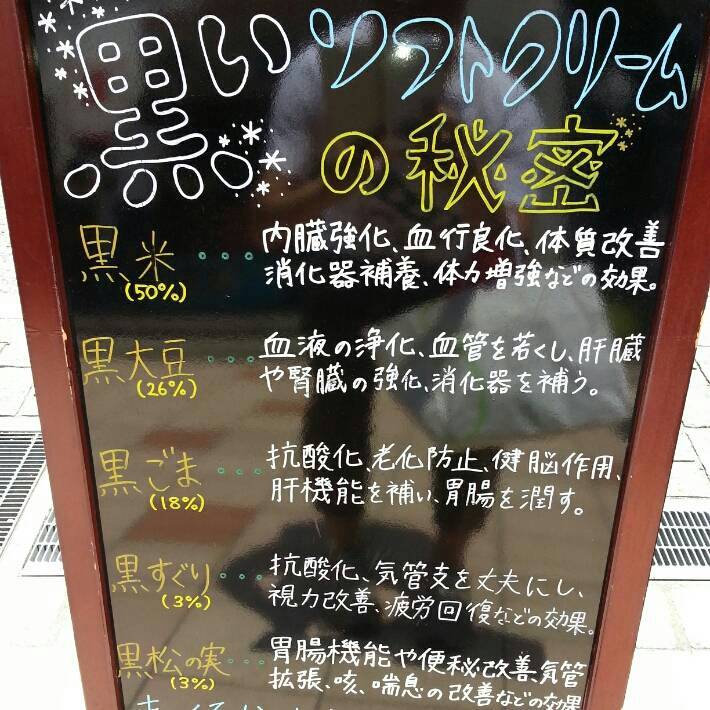 黒いソフトクリーム
の秘密
黒米・・・内臓強化、血行良化、体質改善
(50%) 消化器補養、体力増強などの効果。
黒大豆・・・血液の浄化、血管を若くし、肝臓
(26%) や腎臓の強化、消化器を補う。
黒ごま・・・抗酸化、老化防止、健脳作用、
(18%) 肝機能を補い、胃腸を潤す。
黒すぐり・・・抗酸化、気管支を丈夫にし、
(3%) 視力改善、疲労回復などの効果。
黒松の実・・・胃腸機能や便秘改善、気管
(3%) 拡張、咳、喘息の改善などの効果